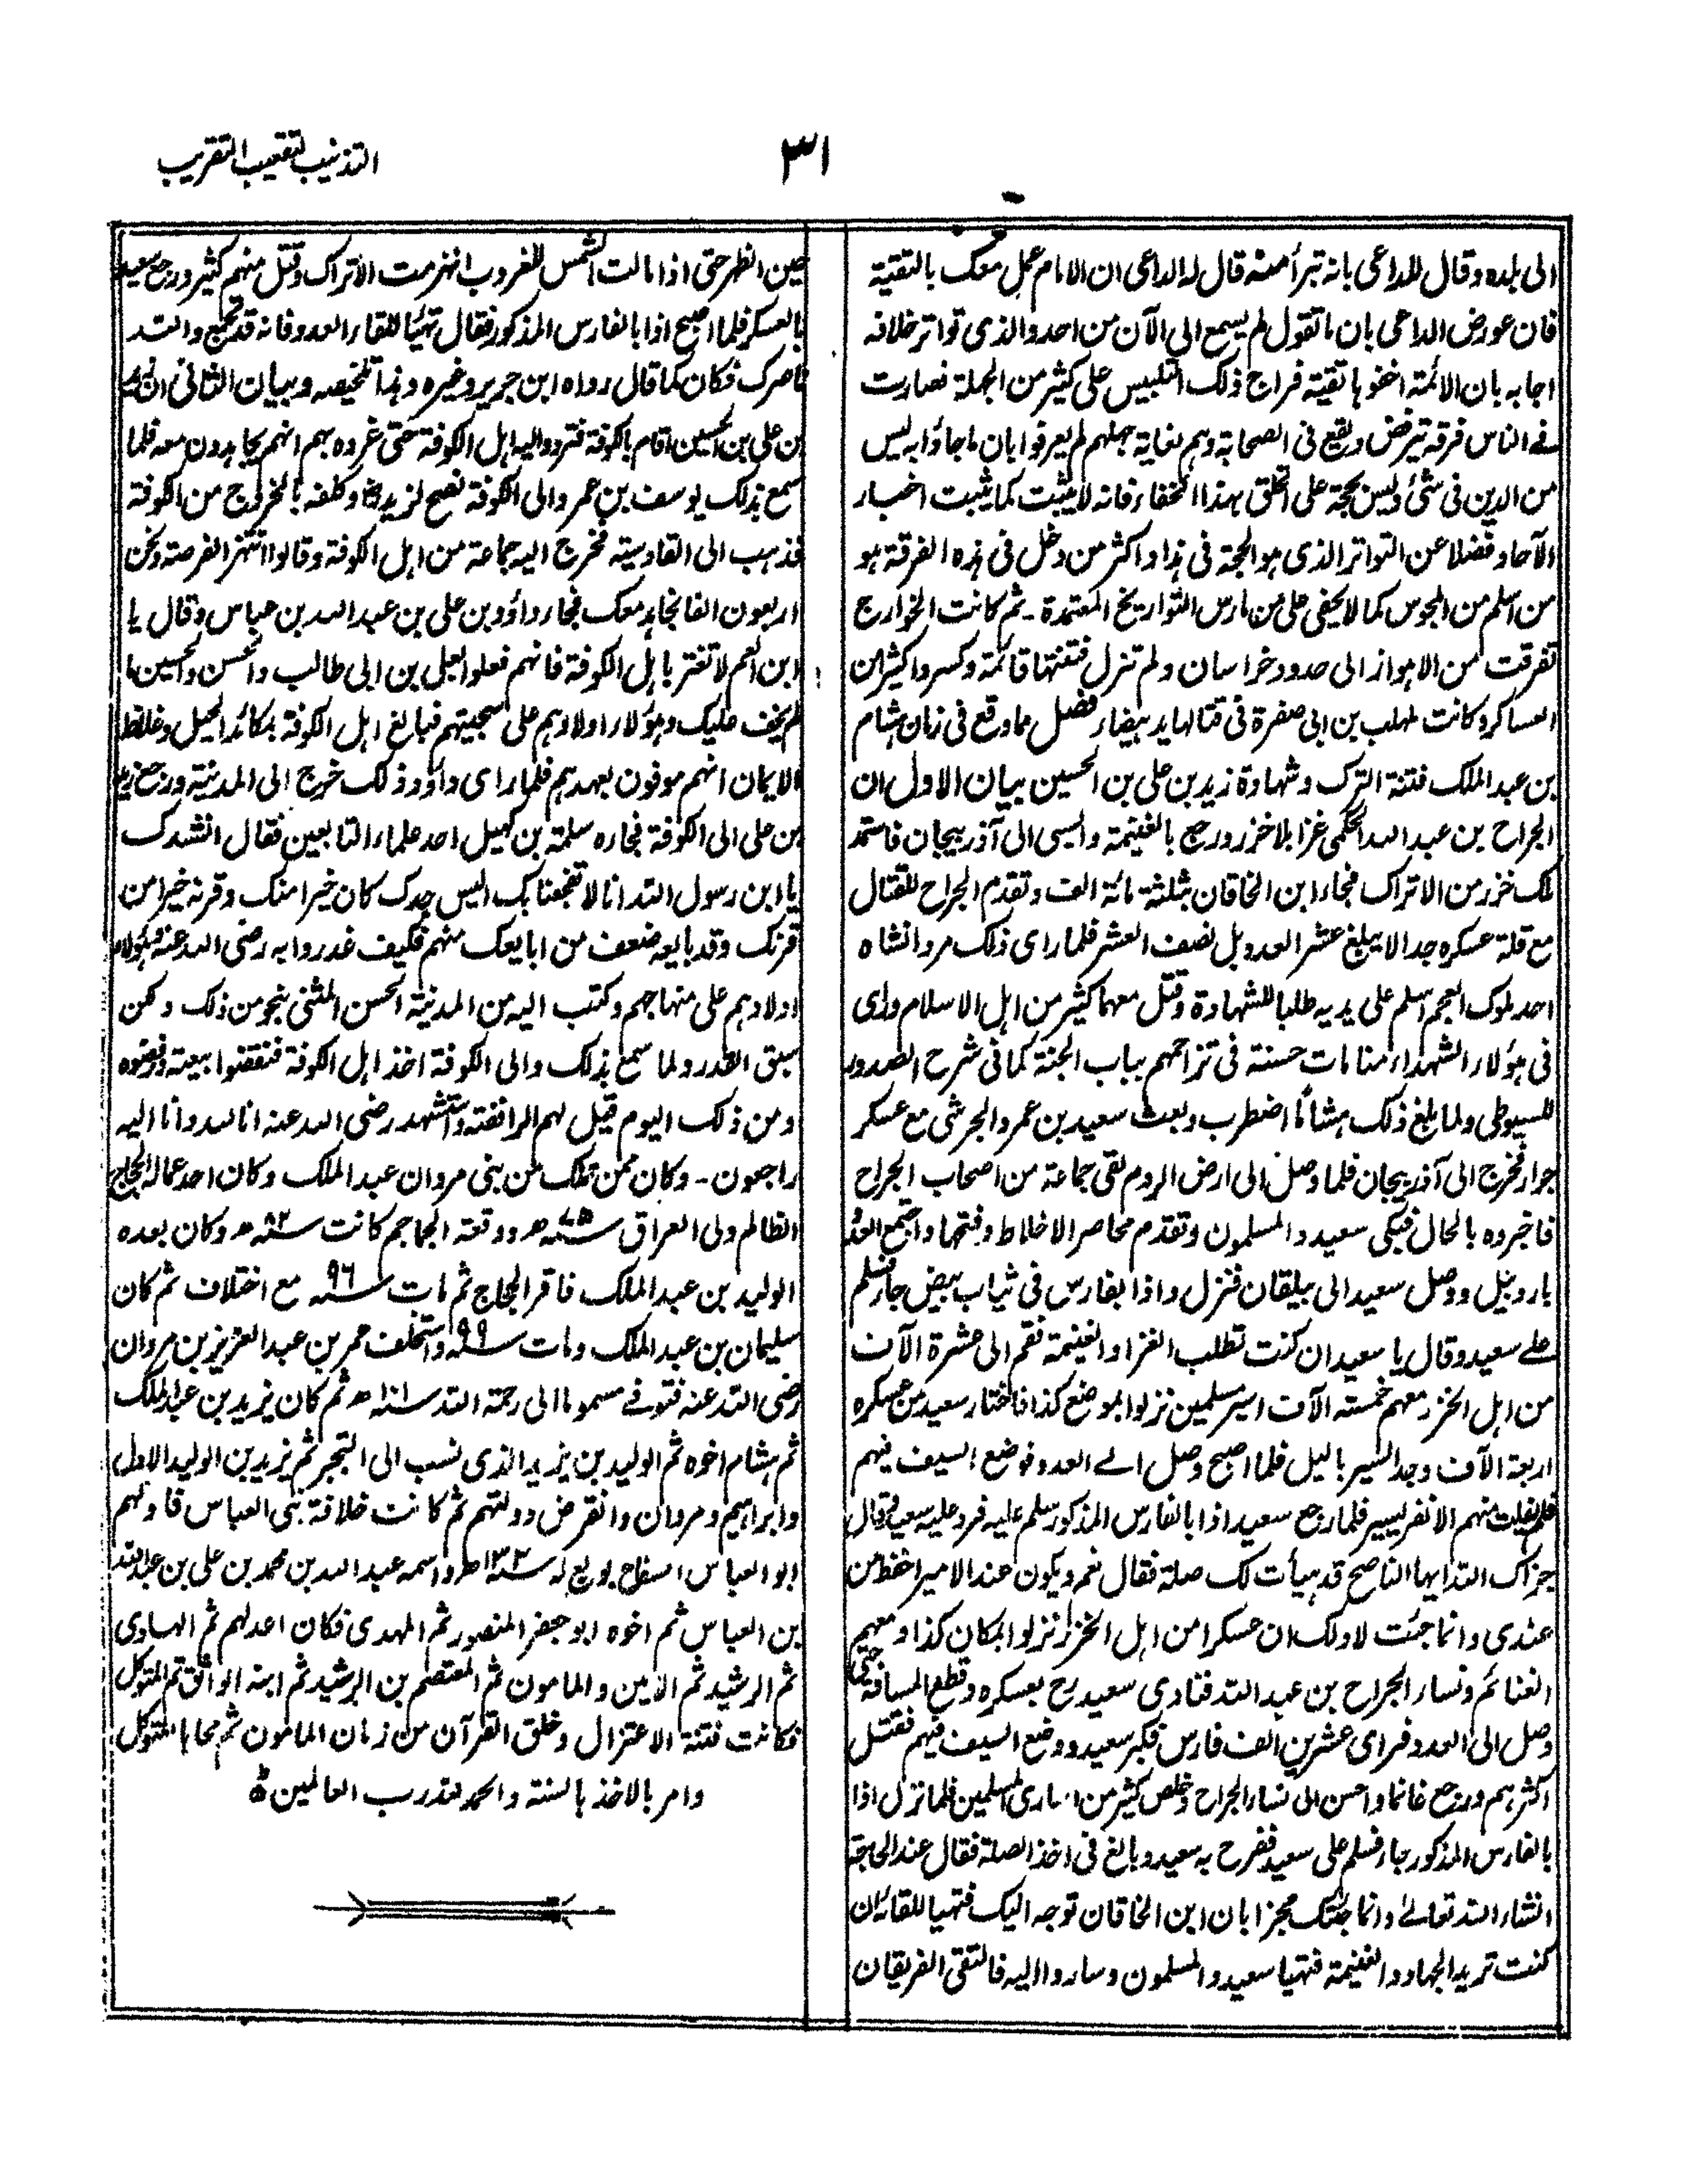 التذنيب لتعقيب التقريب
٣١
الى بلده وقال للداعى بانه تبرأ منه قال له الداعى ان الامام عمل معك بالتقية
فان عورض الداعى بان ما تقول لم يسمع الى الآن من احد والذى تواتر خلافه
اجابه بان الائمة اخفوها تقية فراج ذلك التلبيس على كثير من الجملة فصارت
فى الناس فرقة ترفض ويقع فى الصحابة وهم بغاية جهلهم لم يعرفوا بان ما جاؤا به ليس
من الدين فى شئ وليس بحجة على الخلق بهذا الخفاء فانه لا يثبت كما يثبت اخبار
الآحاد فضلا عن التواتر الذى هو الحجة فى هذا واكثر من دخل فى هذه الفرقة هو
من اسلم من المجوس كما لا يخفى على من مارس التواريخ المعتمدة ـ ثم كانت الخوارج
تفرقت من الاهواز الى حدود خراسان ولم تزل فتنتها قائمة وكسروا كثيرا من
العساكر وكانت لمهلب بن ابى صفرة فى قتالها يد بيضاء فصل ما وقع فى زمان هشام
بن عبد الملك فتنة الترك وشهادة زيد بن على بن الحسين بيان الاول ان
الجراح بن عبد الله الحكمى غزا بلا خزر ورجع بالغنيمة والسبى الى آذربيجان فاستمد
ملك خزر من الاتراك فجاء ابن الخاقان بثلثة مائة الف وتقدم الجراح للقتال
مع قلة عسكره جدا لا يبلغ عشر العدو بل نصف العشر فلما راى ذلك مردانشاه
احد ملوك العجم اسلم على يديه طلبا للشهادة وقتل معهما كثير من اهل الاسلام وراى
فى هؤلاء الشهداء منامات حسنة فى تزاحمهم بباب الجنة كما فى شرح الصدور
للسيوطى ولما بلغ ذلك هشاما اضطرب وبعث سعيد بن عمرو الجرشى مع عسكر
جرار فخرج الى آذربيجان فلما وصل الى ارض الروم لقى جماعة من اصحاب الجراح
فاخبروه بالحال فبكى سعيد والمسلمون وتقدم محاصر الاخلاط وفتحها واجتمع العدو
باردبيل ووصل سعيد الى بيلقان فنزل واذا بفارس فى ثياب بيض جاء فسلم
على سعيد وقال يا سعيد ان كنت تطلب الغزاء والغنيمة فقم الى عشرة الآف
من اهل الخزر معهم خمسة الآف اسير مسلمين نزلوا بموضع كذا فاختار سعيد من عسكره
اربعة الآف وجد السير بالليل فلما اصبح وصل الى العدو فوضع السيف فيهم
فلم يفلت منهم الا نفر يسير فلما رجع سعيد اذا بالفارس المذكور سلم عليه فرد عليه سعيد وقال
جزاك الله ايها الناصح قد هيأت لك صلة فقال نعم ويكون عند الامير احفظ من
عندى وانما جئت لادلك ان عسكرا من اهل الخزر نزلوا بمكان كذا ومعهم
الغنائم ونساء الجراح بن عبد الله فنادى سعيد رح بعسكره وقطع المسافة حتى
وصل الى العدو فراى عشرين الف فارس فكبر سعيد ووضع السيف فيهم فقتل
اكثرهم ورجع غانما واحسن الى نساء الجراح وخلص كثير من اسارى المسلمين فلما نزل اذا
بالفارس المذكور جاء فسلم على سعيد ففرح به سعيد وبالغ فى اخذ الصلة فقال عند الحاجة
انشاء الله تعالى وانما جئتك مخبرا بان ابن الخاقان توجه اليك فتهيا للقائه ان
كنت تريد الجهاد والغنيمة فتهيا سعيد والمسلمون وساروا اليه فالتقى الفريقان
حين الظهر حتى اذا مالت الشمس للغروب انهزمت الاتراك وقتل منهم كثير ورجع سعيد
بالعسكر فلما اصبح اذا بالفارس المذكور فقال تهيئا للقاء العدو فانه قد تجمع والله
ناصرك فكان كما قال رواه ابن جرير وغيره وهذا تلخيصه وبيان الثانى ان زيد
بن على بن الحسين اقام بالكوفة فتردد اليه اهل الكوفة حتى غروه بهم انهم يجاهدون معه فلما
سمع بذلك يوسف بن عمر والى الكوفة نصح لزيد وكلفه بالخروج من الكوفة
فذهب الى القادسية فخرج اليه جماعة من اهل الكوفة وقالوا انتهز الفرصة ونحن
اربعون الفا نجاهد معك فجاء داؤد بن على بن عبد الله بن عباس وقال يا
ابن العم لا تغتر باهل الكوفة فانهم فعلوا بعلى بن ابى طالب والحسن والحسين ما
لم يخف عليك وهؤلاء اولادهم على سجيتهم فبالغ اهل الكوفة بمكائد الحيل وغلاظ
الايمان انهم موفون بعهدهم فلما راى داؤد ذلك خرج الى المدينة ورجع زيد
بن على الى الكوفة فجاره سلمة بن كهيل احد علماء التابعين فقال انشدك
يا ابن رسول الله انا لا تفجعنا بك اليس جدك كان خيرا منك وقرنه خيرا من
قرنك وقد بايعه ضعف من ابايعك منهم فكيف غدروا به رضى الله عنه فهؤلاء
اولادهم على منهاجهم وكتب اليه من المدينة الحسن المثنى بنحو من ذلك ولكن
سبق القدر ولما سمع بذلك والى الكوفة اخذ اهل الكوفة فنقضوا بيعته ورفضوه
ومن ذلك اليوم قيل لهم الرافضة واستشهد رضى الله عنه انا لله وانا اليه
راجعون ـ وكان ممن تملك من بنى مروان عبد الملك وكان احد عماله الحجاج
الظالم ولى العراق سنه ٧٥ھ ووقعة الجماجم كانت سنه ٨٢ھ وكان بعده
الوليد بن عبد الملك فاقر الحجاج ثم مات سنه ٩٦ مع اختلاف ثم كان
سليمان بن عبد الملك ومات سنه ٩٩ واستخلف عمر بن عبد العزيز بن مروان
رضى الله عنه فتوفى مسموما الى رحمة الله سنه ١٠١ھ ثم كان يزيد بن عبد الملك
ثم هشام اخوه ثم الوليد بن يزيد الذى نسب الى التجبر ثم يزيد بن الوليد الاول
وابراهيم ومروان وانقرض دولتهم ثم كانت خلافة بنى العباس فاولهم
ابو العباس السفاح بويع له سنه ١٣٢ھ واسمه عبد الله بن محمد بن على بن عبد الله
بن العباس ثم اخوه ابو جعفر المنصور ثم المهدى فكان اعدلهم ثم الهادى
ثم الرشيد ثم الامين والمامون ثم المعتصم بن الرشيد ثم ابنه الواثق ثم المتوكل
فكانت فتنة الاعتزال وخلق القرآن من زمان المامون ثم محاها المتوكل
وامر بالاخذ بالسنة والحمد لله رب العالمين